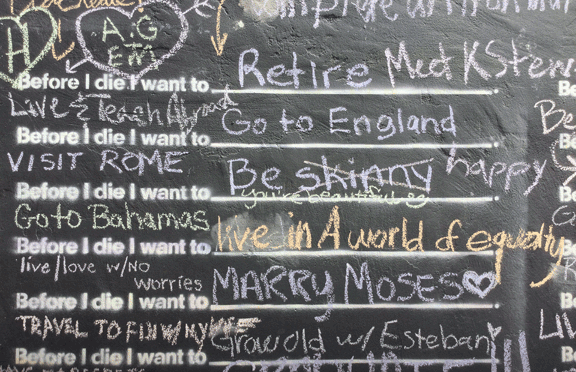 A.G
Before I die I want to Retire Meet K Stew
Live & Teach Abroad
Before I die I want to Go to England
VISIT ROME
Before I die I want to Be skinny happy
you're beautiful
Go to Bahamas
Before I die I want to live in A world of equality
live/love w/No
worries
Before I die I want to MARRY MOSES
TRAVEL TO
Before I die I want to Grow old w/ Esteban